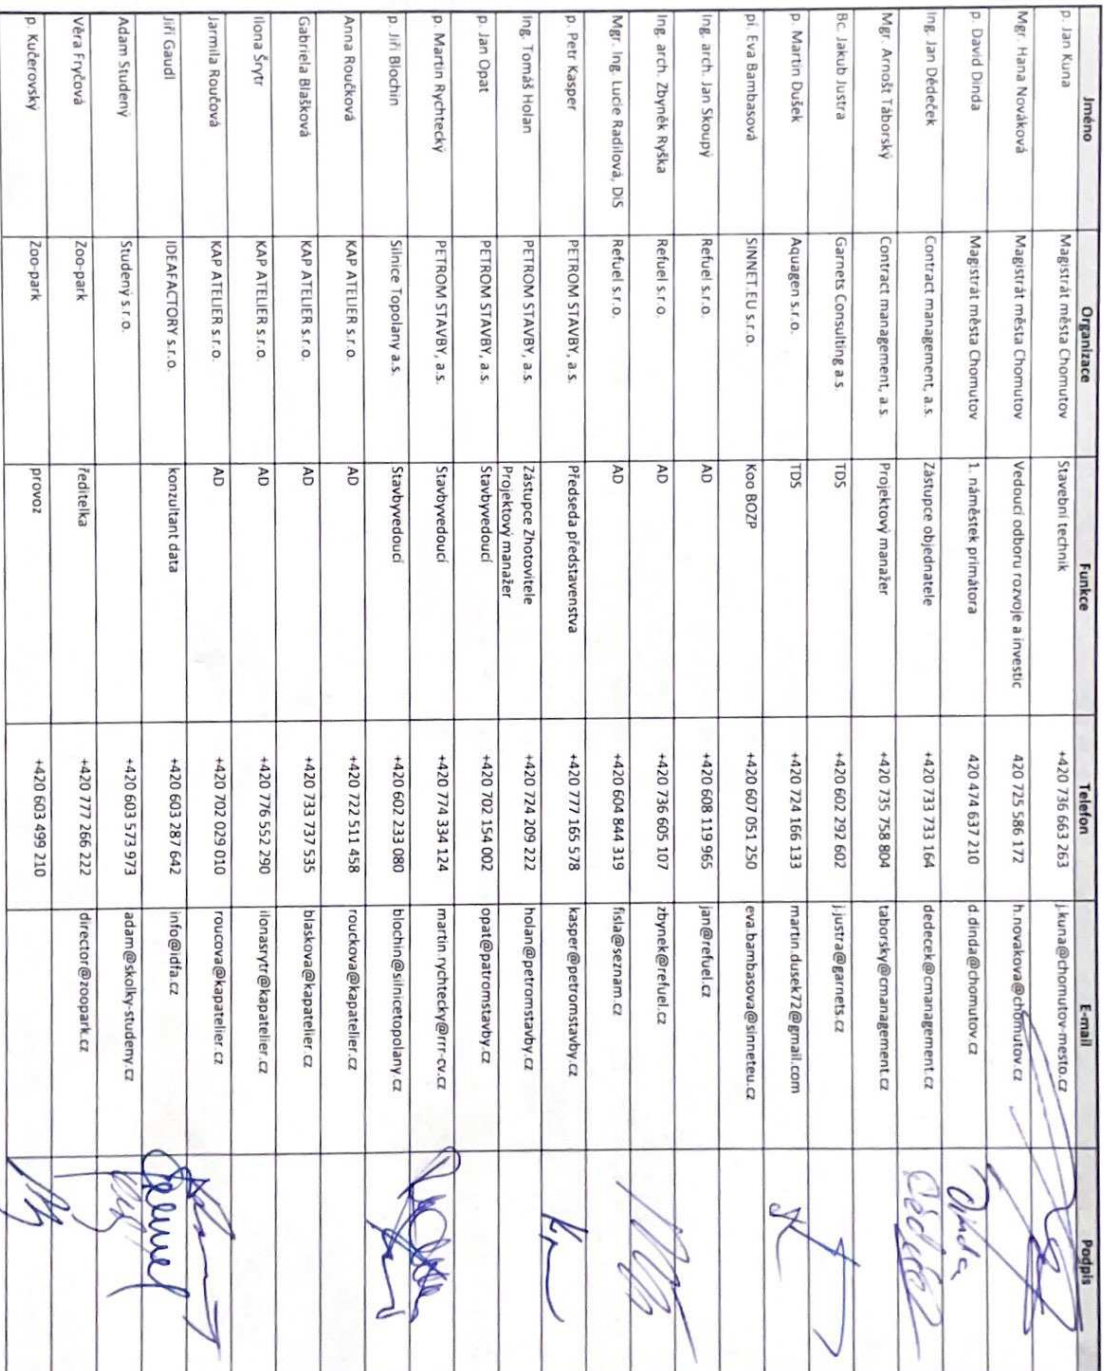 Jméno Organizace Funkce Telefon E-mail Podpis
p. Jan Kuna Magistrát města Chomutov Stavební technik +420 736 663 263 j.kuna@chomutov-mesto.cz
Mgr. Hana Nováková Magistrát města Chomutov Vedoucí odboru rozvoje a investic 420 725 586 172 h.novakova@chomutov.cz
p. David Dinda Magistrát města Chomutov 1. náměstek primátora 420 474 637 210 d.dinda@chomutov.cz Dinda
Ing. Jan Dědeček Contract management, a.s. Zástupce objednatele +420 733 733 164 dedecek@cmanagement.cz
Mgr. Arnošt Táborský Contract management, a.s. Projektový manažer +420 735 758 804 taborsky@cmanagement.cz
Bc. Jakub Justra Garnets Consulting a.s. TDS +420 602 292 602 j.justra@garnets.cz
p. Martin Dušek Aquagen s.r.o. TDS +420 724 166 133 martin.dusek72@gmail.com
pí. Eva Bambasová SINNET.EU s.r.o. Koo BOZP +420 607 051 250 eva.bambasova@sinneteu.cz
Ing. arch. Jan Skoupý Refuel s.r.o. AD +420 608 119 965 jan@refuel.cz
Ing. arch. Zbyněk Ryška Refuel s.r.o. AD +420 736 605 107 zbynek@refuel.cz
Mgr. Ing. Lucie Radilová, DiS Refuel s.r.o. AD +420 604 844 319 fisla@seznam.cz
p. Petr Kasper PETROM STAVBY, a.s. Předseda představenstva +420 777 165 578 kasper@petromstavby.cz
Ing. Tomáš Holan PETROM STAVBY, a.s. Zástupce Zhotovitele +420 724 209 222 holan@petromstavby.cz
Projektový manažer
p. Jan Opat PETROM STAVBY, a.s. Stavbyvedoucí +420 702 154 002 opat@patromstavby.cz
p. Martin Rychtecký PETROM STAVBY, a.s. Stavbyvedoucí +420 774 334 124 martin.rychtecky@rrr-cv.cz
p. Jiří Blochin Silnice Topolany a.s. Stavbyvedoucí +420 602 233 080 blochin@silnicetopolany.cz
Anna Roučková KAP ATELIER s.r.o. AD +420 722 511 458 rouckova@kapatelier.cz
Gabriela Blašková KAP ATELIER s.r.o. AD +420 733 737 535 blaskova@kapatelier.cz
Ilona Šrytr KAP ATELIER s.r.o. AD +420 776 552 290 ilonasrytr@kapatelier.cz
Jarmila Roučová KAP ATELIER s.r.o. AD +420 702 029 010 roucova@kapatelier.cz
Jiří Gaudl IDEAFACTORY s.r.o. konzultant data +420 603 287 642 info@idfa.cz
Adam Studený Studený s.r.o. +420 603 573 973 adam@skolky-studeny.cz
Věra Fryčová Zoo-park ředitelka +420 777 266 222 director@zoopark.cz
p. Kučerovský Zoo-park provoz +420 603 499 210